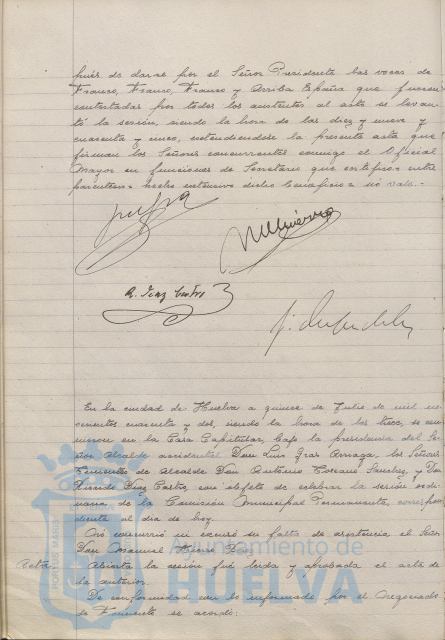 pués de darse por el Señor Presidente las voces de
Franco, Franco, Franco y Arriba España que fueron
contestadas por todos los asistentes al acto se levan-
tó la sesión, siendo la hora de las diez y nueve y
cuarenta y cinco, extendiendose la presente acta que
firman los Señores concurrentes conmigo el Oficial
Mayor en funciones de Secretario que certifico = entre
parentesis = hecho extensivo dicho beneficio = no vale.-
R. Diaz Castro
En la ciudad de Huelva a quince de Julio de mil no-
vecientos cuarenta y dos, siendo la hora de las trece, se reu-
nieron en la Casa Capitular, bajo la presidencia del Se-
ñor Alcalde accidental Don Luis Arriaga, los Señores
Tenientes de Alcalde Don Antonio Sanchez, y Don
Ricardo Diaz Castro, con objeto de celebrar la sesión ordi-
naria, de la Comisión Municipal Permanente, correspon-
diente al dia de hoy.
No concurrió ni excusó su falta de asistencia el Señor
Don Manuel
Acta. Abierta la sesión fué leida y aprobada el acta de
la anterior.
De conformidad con lo informado por el Negociado
de Fomento se acordó:
Ayuntamiento de
HUELVA
PORTUS MARIS